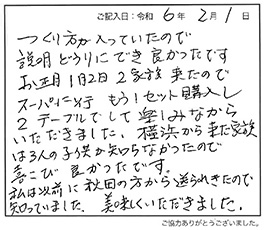 ご記入日：令和 6年 2月 1日
つくり方が入っていたので
説明どうりにでき良かったです
お正月1月2日 2家族 来たので
スーパーに行 もう1セット購入し
2テーブルでして楽しみながら
いただきました。横浜から来た家族
は3人の子供が知らなかったので
喜こび良かったです。
私は以前に秋田の方から送られきたので
知っていました。美味しくいただきました。
ご協力ありがとうございました。